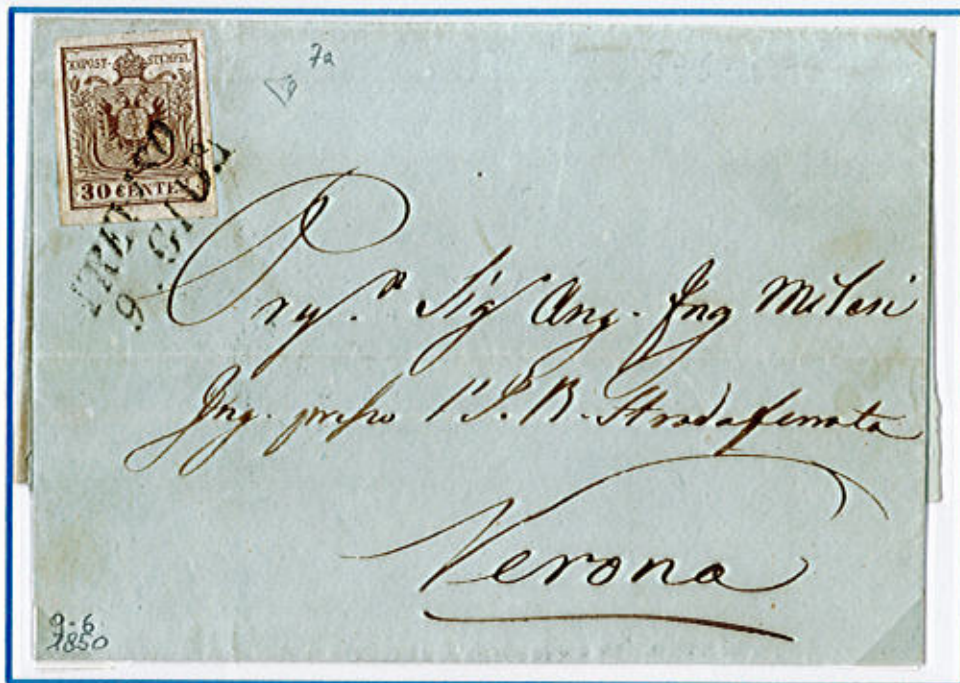 7a
KKPOST-STEMPEL
30 CENTES
TREVISO
9. GIUG.
Sig Ang. Ing Milesi
Ing. presso l'I. R. Strada ferrata
Verona
9-6
1850